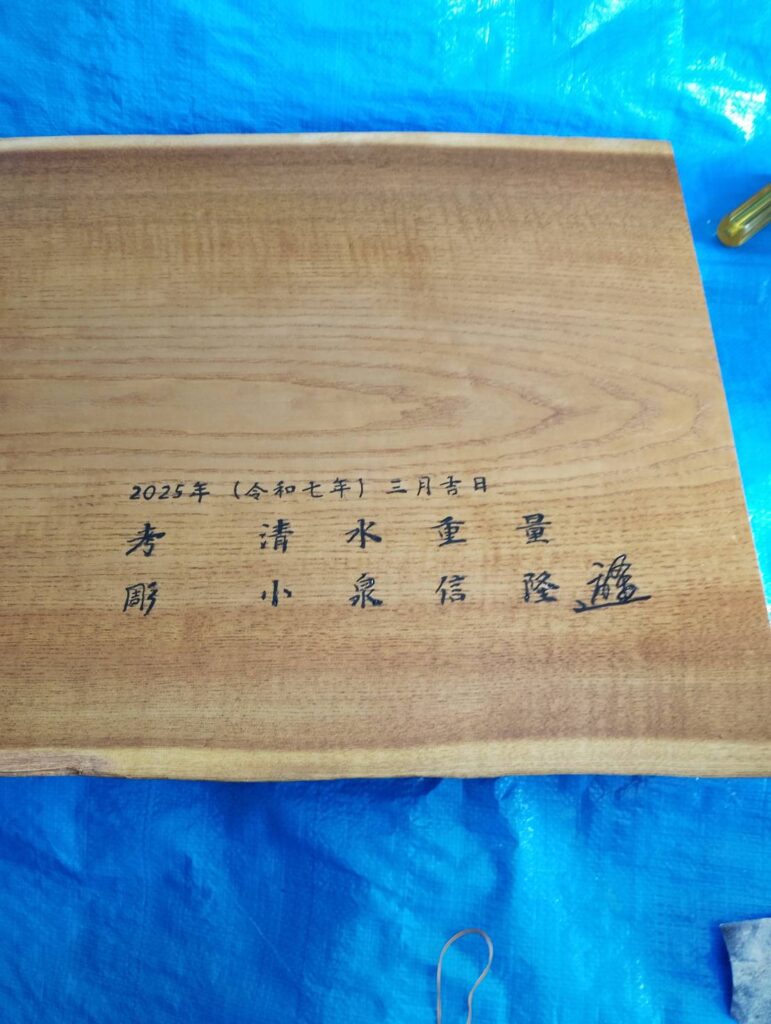 2025年（令和七年）三月吉日
考 清水重量
彫 小泉信隆